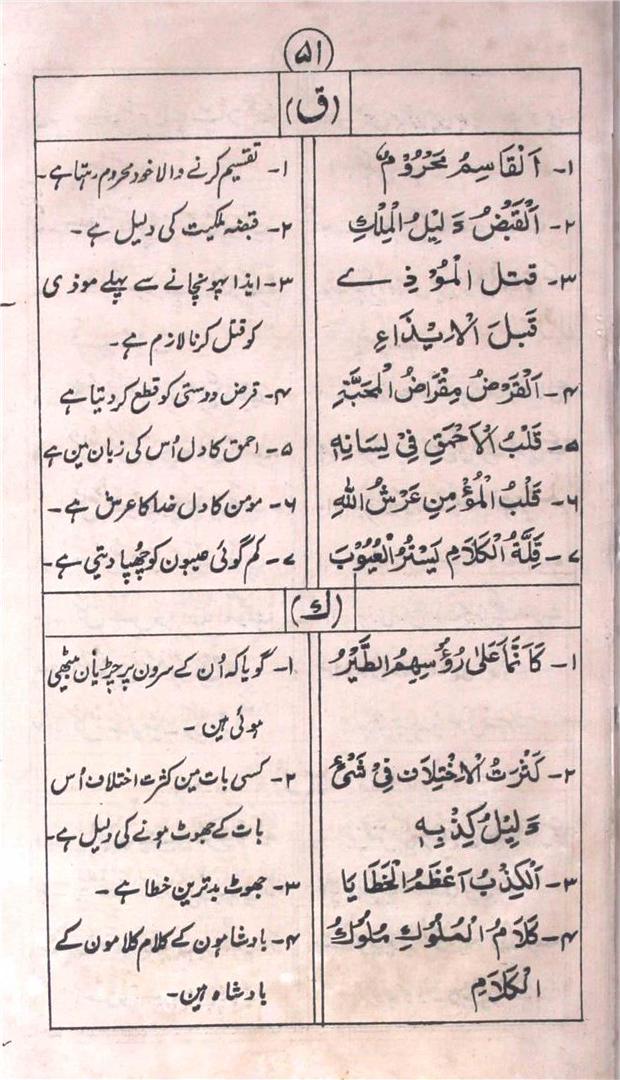 ۵۱
(ق)
۱- اَلْقَاسِمُ مَحْرُوْمٌ ۱- تقسیم کرنے والا خود محروم رہتا ہے۔
۲- اَلْقَبْضُ دَلِیْلُ الْمِلْكِ ۲- قبضہ ملکیت کی دلیل ہے۔
۳- قتل الْمُوْذِے ۳- ایذا پہونچانے سے پہلے موذی
قَبلَ الْاِیْذَاءِ کو قتل کرنا لازم ہے۔
۴- اَلْقَرْضُ مِقْرَاضُ الْمَحَبَّةِ ۴- قرض دوستی کو قطع کر دیتا ہے
۵- قَلْبُ الْاَحْمَقِ فِیْ لِسَانِهٖ ۵- احمق کا دل اُس کی زبان مین ہے
۶- قَلْبُ الْمُؤْمِنِ عَرْشُ اللهِ ۶- مومن کا دل خدا کا عرش ہے۔
۷- قِلَّةُ الْكَلَامِ یَسْتُرُ الْعُیُوْبَ ۷- کم گوئی عیبون کو چُھپا دیتی ہے۔
(ك)
۱- كَاَنَّمَا عَلٰی رُؤُسِهِمُ الطَّیْرُ ۱- گویا کہ اُن کے سرون پر چڑیان بیٹھی
ہوئی ہین۔
۲- كَثْرَتُ الْاِخْتِلَافِ فِیْ شَیْءٍ ۲- کسی بات مین کثرت اختلاف اُس
دَلِیْلُ كِذْبِهٖ بات کے جھوٹ ہونے کی دلیل ہے۔
۳- اَلْكِذْبُ اَعْظَمُ الْخَطَایَا ۳- جھوٹ بدترین خطا ہے۔
۴- كَلَامُ الْمُلُوْكِ مُلُوْكُ ۴- بادشاہون کے کلام کلامون کے
الْكَلَامِ بادشاہ ہین۔